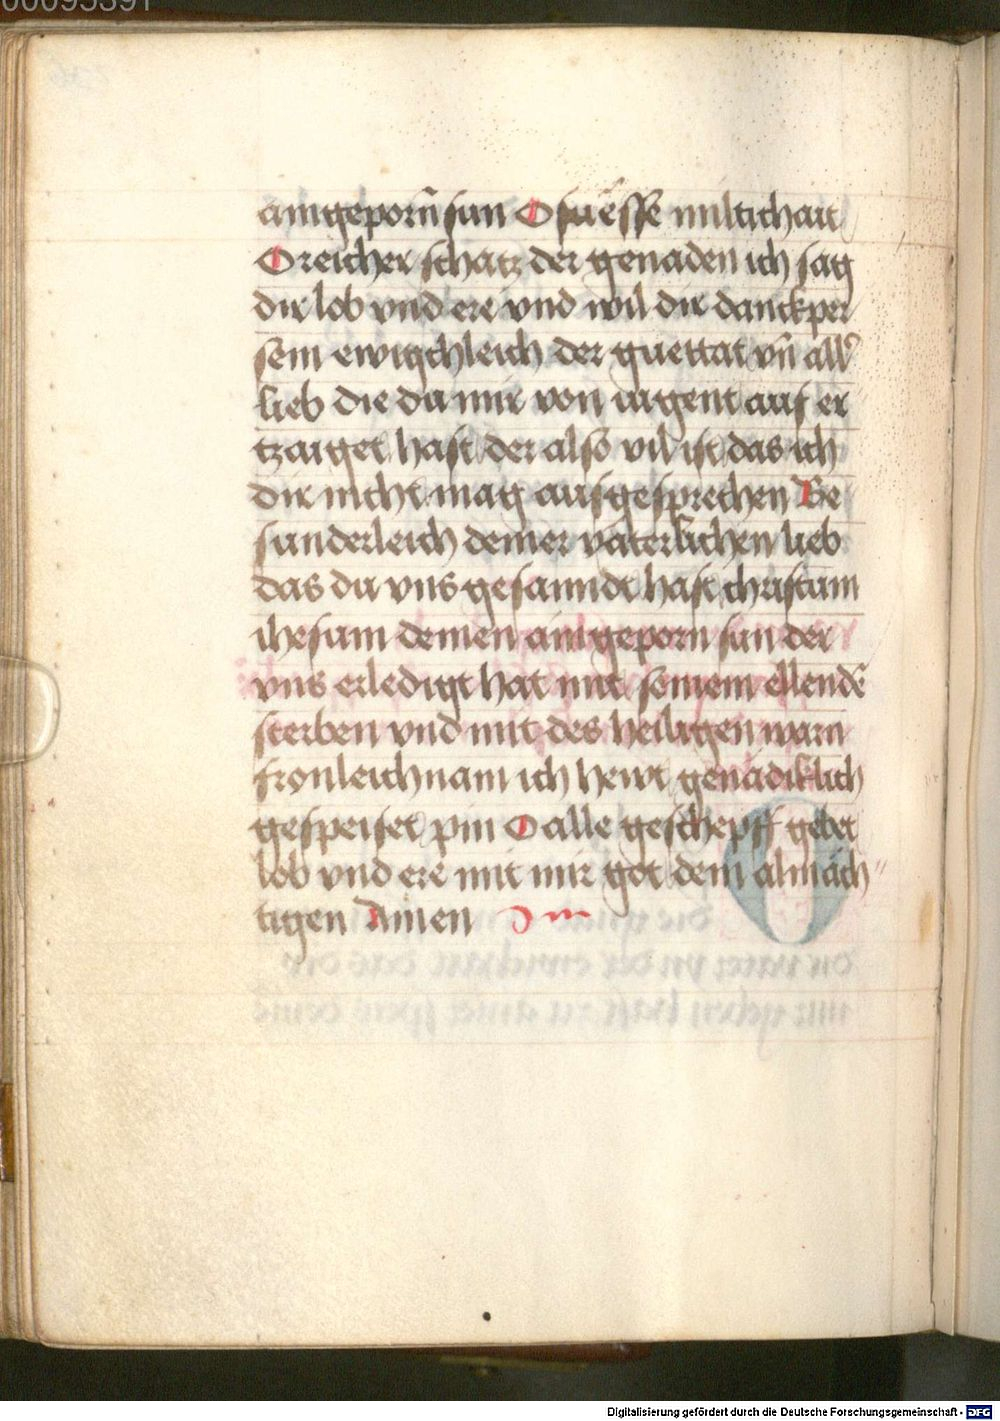 00095391
aingeporñ sun O suͤesse miltichait
O reicher schatz der genaden ich sag
dir lob vnd ere vnd wil dir danckper
sem ewigchleich der guettat vñ all'
lieb die du mir von iugent auf er
tzaiget hast der also vil ist das ich
dir nicht mag aufgesprechen Be
sunderleich deiner väterlichen lieb
das du vns gesanndt hast christum
ihesum deinen aingeporn sun der
vns erledigt hat mit seinem ellendē
sterben vnd mit des heiligen warn
fronleichnam ich hewt genädiklich
gespeiset pin O alle geschepff gebet
lob vnd ere mit mir got dem almäch"
tigen Amen
Digitalisierung gefördert durch die Deutsche Forschungsgemeinschaft - DFG